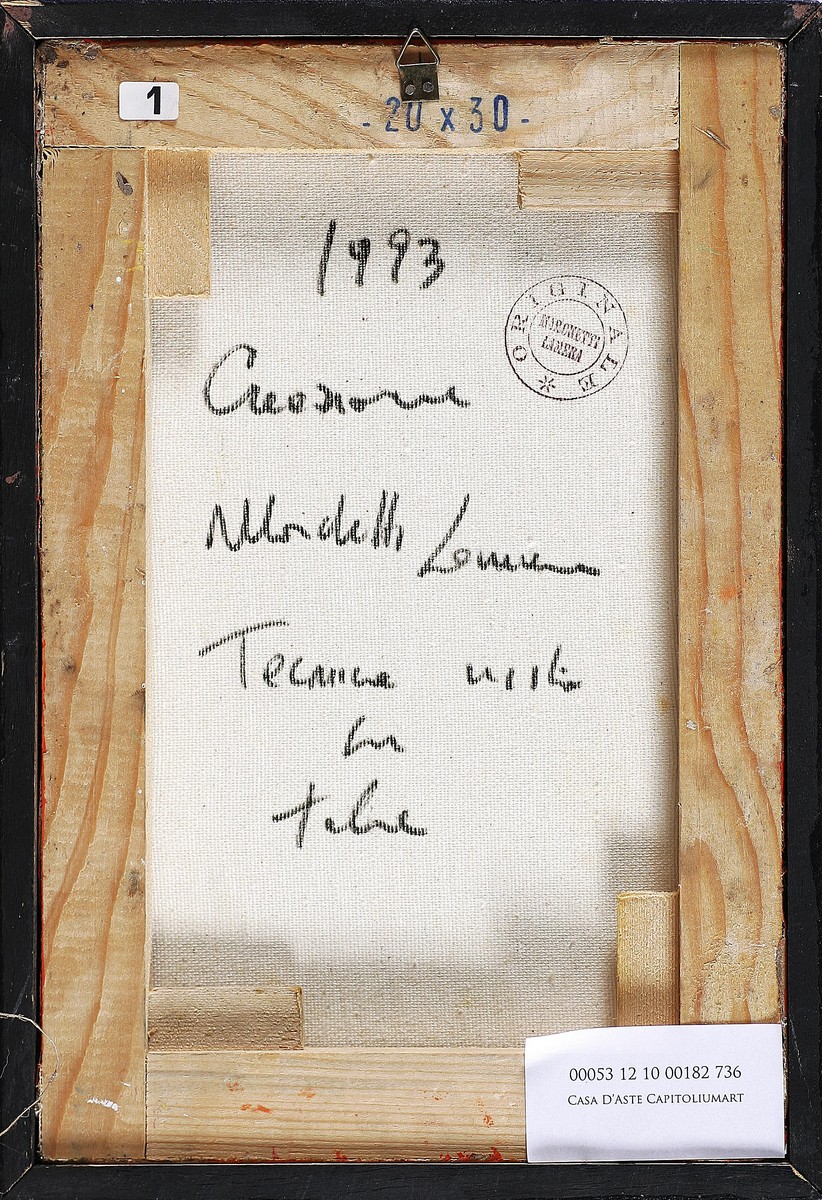 1
- 20 x 30 -
1993
ORIGINALE *
MARCHETTI
LAMERA
Creazione
Marchetti Lamera
Tecnica mista
su
tela
00053 12 10 00182 736
CASA D'ASTE CAPITOLIUMART